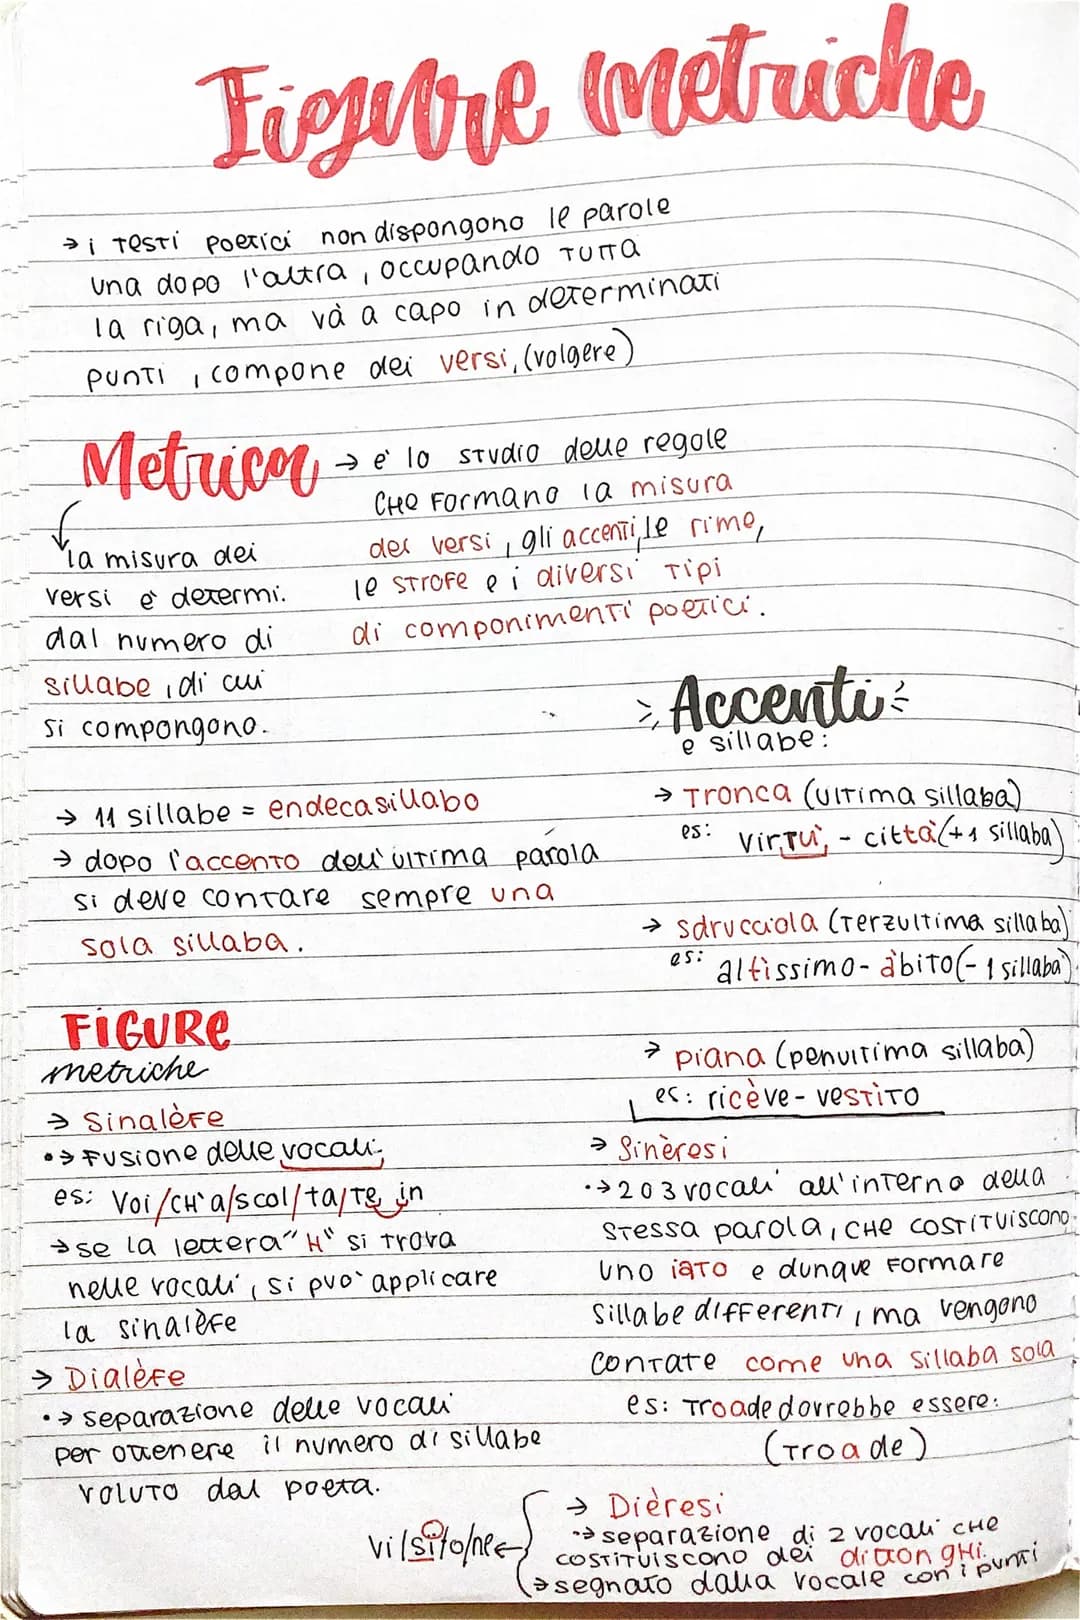 Figure metriche
→ i testi poetici non dispongono le parole
una dopo l'altra, occupando tutta
la riga, ma và a capo in determinati
punti, compone dei versi, (volgere)
Metrica → e' lo studio delle regole
che formano la misura
dei versi, gli accenti, le rime,
le strofe e i diversi tipi
di componimenti poetici.
la misura dei
versi è determi.
dal numero di
sillabe, di cui
si compongono.
→ 11 sillabe = endecasillabo
→ dopo l'accento dell'ultima parola
si deve contare sempre una
sola sillaba.
Accenti
e sillabe:
→ Tronca (ultima sillaba)
es: virtù, - città (+1 sillaba)
→ sdrucciola (terzultima sillaba)
es: altìssimo - àbito (- 1 sillaba)
→ piana (penultima sillaba)
es: ricève - vestìto
FIGURE
metriche
→ Sinalèfe
•→ Fusione delle vocali
es: Voi/ch'a/scol/ta/te in
→ se la lettera "H" si trova
nelle vocali, si puo' applicare
la sinalèfe
→ Dialèfe
•→ separazione delle vocali
per ottenere il numero di sillabe
voluto dal poeta.
→ Sinèresi
•→ 2 o 3 vocali all'interno della
stessa parola, che costituiscono
uno iato e dunque formare
sillabe differenti, ma vengono
contate come una sillaba sola
es: Troade dovrebbe essere:
(Tro a de)
→ Dièresi
•→ separazione di 2 vocali che
costituiscono dei dittonghi.
→ segnato dalla vocale con i punti
vi/sï/o/ne ←